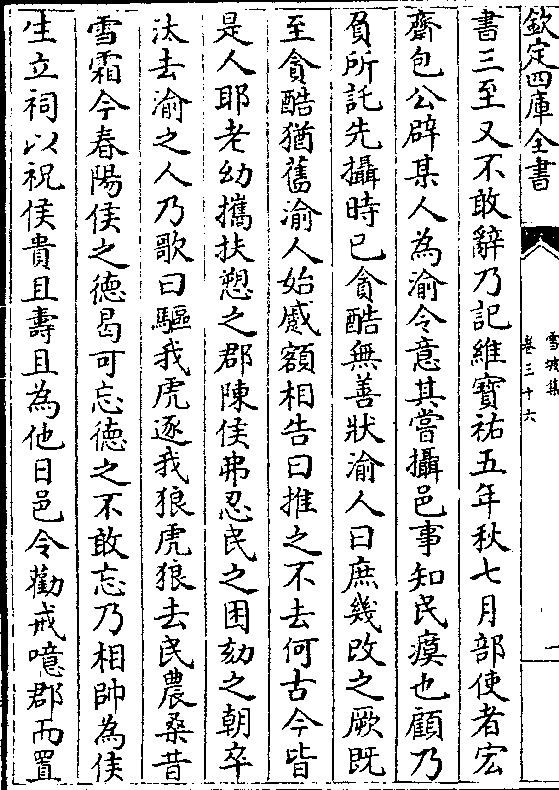 欽定四庫全書
雪坡集
卷三十六
一
書三至又不敢辭乃記維寶祐五年秋七月部使者宏
齋包公辟某人為渝令意其嘗攝邑事知民瘼也顧乃
負所託先攝時已貪酷無善狀渝人曰庶幾改之厥既
至貪酷猶舊渝人始蹙額相告曰推之不去何古今皆
是人耶老幼攜扶愬之郡陳侯弗忍民之困劾之朝卒
汰去渝之人乃歌曰驅我虎逐我狼虎狼去民農桑昔
雪霜今春陽侯之德曷可忘德之不敢忘乃相帥為侯
生立祠以祝侯貴且壽且為他日邑令勸戒噫郡而置